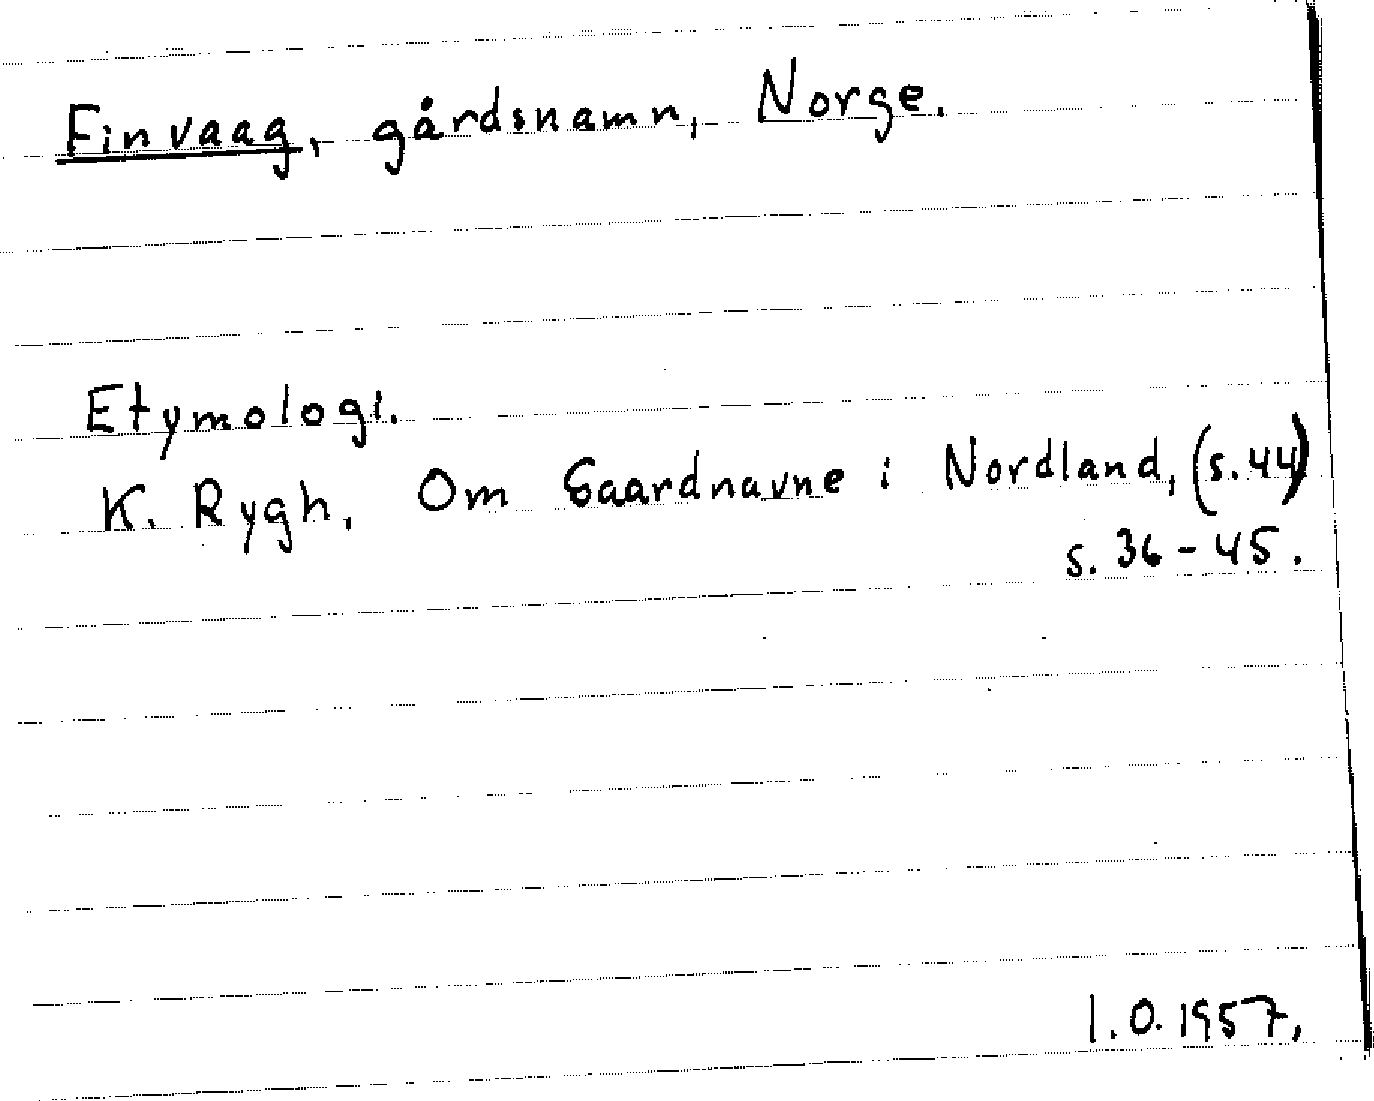 Finvaag, gårdsnamn, Norge.
Etymologi.
K. Rygh, Om Gaardnavne i Nordland, (s. 44)
s. 36-45.
I.O. 1957,